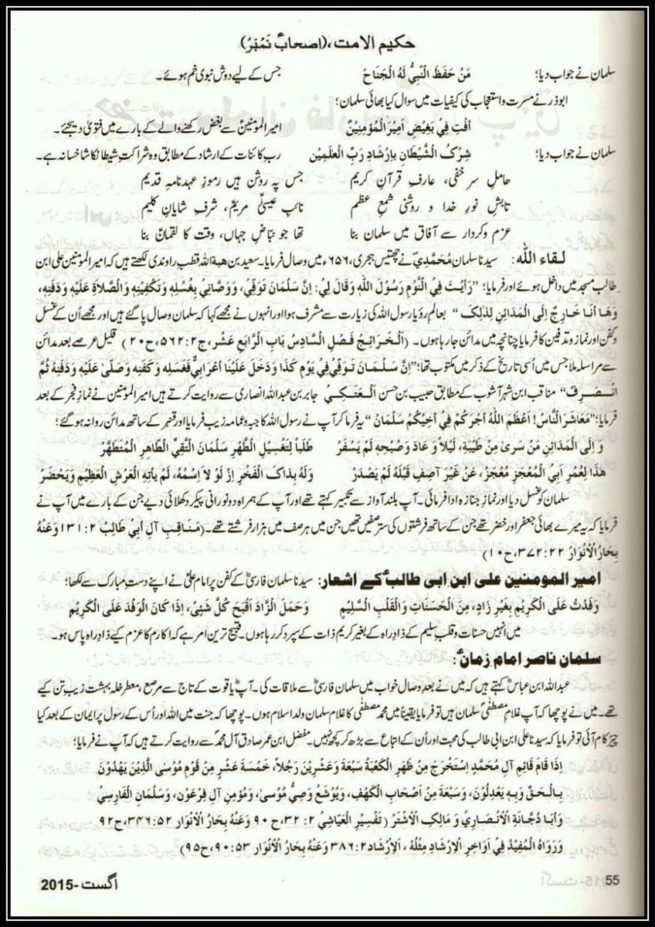 حکیم الامت، (اصحابؓ نمبر)
سلمان نے جواب دیا؛ مَنْ حَفَظَ النَّبِيُّ لَهُ الْجَنَاحُ جس کے لیے دوش نبوی خم ہوئے۔
ابوذر نے مسرت و استعجاب کی کیفیات میں سوال کیا بھائی سلمان؛
اَفْتِ فِيْ بَغِيْضِ اَمِيْرِ الْمُؤْمِنِيْنَ امیر المومنینؑ سے بغض رکھنے والے کے بارے میں فتویٰ دیجئے۔
سلمان نے جواب دیا؛ شِرْکُ الشَّيْطَانِ بِاِرْشَادِ رَبِّ الْعٰلَمِيْنَ رب کائنات کے ارشاد کے مطابق وہ شراکتِ شیطان کا شاخسانہ ہے۔
حاملِ سر خفی، عارفِ قرآنِ کریم جس پہ روشن ہیں رموزِ عہدنامہ قدیم
تابش نور خدا و روشنی شمع عظم نائب عیسیٰؑ مریمؑ، شرف شایان کلیم
عزم و کردار سے آفاق میں سلمان بنا تھا جو نباضِ جہاں، وقت کا لقمانؑ بنا
لقاء اللہ: سیدنا سلمان محمدیؓ نے چھتیس ہجری، ۶۵۶ء میں وصال فرمایا۔ سعید بن ھبۃ اللہ قطب راوندی لکھتے ہیں کہ امیر المومنین علی ابن
طالب مسجد میں داخل ہوئے اور فرمایا؛ ”رَاَيْتُ فِي النَّوْمِ رَسُوْلَ اللّٰهِ وَقَالَ لِيْ: اِنَّ سَلْمَانَ تَوَفّٰى، وَوَصَّانِيْ بِغُسْلِهٖ وَتَكْفِيْنِهٖ وَالصَّلَاةِ عَلَيْهِ وَدَفْنِهٖ،
وَهَا اَنَا خَارِجٌ اِلَى الْمَدَائِنِ لِذٰلِكَ“ بعالم رؤیا رسول اللہ کی زیارت سے مشرف ہوا اور انہوں نے مجھے کہا کہ سلمان وصال پا گئے ہیں اور مجھے اُن کے غسل
وکفن اور نماز و تدفین کا فرمایا چنانچہ میں مدائن جا رہا ہوں۔ (اَلْخَرَائِجُ فَصْلُ السَّادِسُ بَابُ الرَّابِعُ عَشَر، ج۲: ۵۶۲، ح۲۰) قلیل عرصے بعد مدائن
سے مراسلہ ملا جس میں اُسی تاریخ کے ذکر میں مکتوب تھا؛ ”اِنَّ سَلْمَانَ تَوَفّٰى فِيْ يَوْمِ كَذَا وَدَخَلَ عَلَيْنَا اَعْرَابِيٌّ فَغَسَلَهٗ وَكَفَّنَهٗ وَصَلّٰى عَلَيْهِ وَدَفَنَهٗ ثُمَّ
انْصَرَفَ“ مناقب ابن شہر آشوب کے مطابق حبیب بن حسن اَلْعَتَكِيُّ جابر بن عبد اللہ انصاری سے روایت کرتے ہیں امیر المومنین نے نماز فجر کے بعد
فرمایا؛ ”مَعَاشِرَ النَّاسُ! اَعْظَمَ اللّٰهُ اَجْرَكُمْ فِيْ اَخِيْكُمْ سَلْمَانَ“ یہ فرما کر آپ نے رسول اللہ کا جبہ و عمامہ زیب فرمایا اور قنبر کے ساتھ مدائن روانہ ہو گئے؛
وَ اِلَى الْمَدَائِنِ مَنْ سَرٰى مِنْ طَيْبَةٍ، لَيْلًا وَ عَادَ وَصُبْحُهٗ لَمْ يَسْفَرْ طَلَبًا لِتَغْسِيْلِ الطُّهْرِ سَلْمَانَ التَّقِيِّ الطَّاهِرِ الْمُتَطَهِّرِ
هٰذَا لِعُمْرِ اَبِي الْمُعْجِزِ مُعْجَزٌ، عَنْ غَيْرِ آصِفِ قَبْلَهٗ لَمْ يَصْدَرْ وَلَهٗ بِذَاكَ الْفَخْرِ اِذْ لَوْ لَا اسْمُهٗ، لَمْ يَاْتِهِ الْعَرْشُ الْعَظِيْمُ وَيَحْضَرْ
سلمان کو غسل دیا اور نماز جنازہ ادا فرمائی۔ آپ بلند آواز سے تکبیر کہتے تھے اور آپ کے ہمراہ دو نورانی پیکر دکھلائی دیے جن کے بارے میں آپ نے
فرمایا کہ یہ میرے بھائی جعفر اور خضر تھے جن کے ساتھ فرشتوں کی ستر صفیں تھیں جن میں ہر صف میں ہزار فرشتے تھے۔ (مَنَاقِبِ آلِ اَبِيْ طَالِبِ ۲: ۱۳۱ وَعَنْهُ
بِحَارُ الْاَنْوَارِ ۲۲: ۳۷۲، ح۱۰)
امیر المومنین علی ابن ابی طالبؑ کے اشعار: سیدنا سلمان فارسیؓ کے کفن پر امام علیؑ نے اپنے دست مبارک سے لکھا؛
وَفَدْتُ عَلَى الْكَرِيْمِ بِغَيْرِ زَادٍ، مِنَ الْحَسَنَاتِ وَالْقَلْبِ السَّلِيْمِ وَحَمْلُ الزَّادِ اَقْبَحُ كُلِّ شَيْئٍ، اِذَا كَانَ الْوَفْدُ عَلَى الْكَرِيْمِ
میں انہیں حسنات و قلب سلیم کے زادِ راہ کے بغیر کریم ذات کے سپرد کر رہا ہوں۔ قبیح ترین امر ہے کہ اکارم کا عزم کیے زادِ راہ پاس ہو۔
سلمان ناصر امام زمانؑ:
عبد اللہ ابن عباسؓ کہتے ہیں کہ میں نے بعد وصال خواب میں سلمان فارسیؓ سے ملاقات کی۔ آپ یاقوت کے تاج سے مرصع، معطر حلہ بہشت زیب تن کیے
تھے۔ میں نے پوچھا کہ آپ غلامِ مصطفیٰؐ سلمان ہیں تو فرمایا یقیناً میں محمد مصطفیٰؐ کا غلام سلمان ولد اسلام ہوں۔ پوچھا کہ جنت میں اللہ اور اُس کے رسول پر ایمان کے بعد کیا
چیز کام آئی تو فرمایا کہ سیدنا علی ابن ابی طالب کی محبت اور اُن کے اتباع سے بڑھ کر کچھ نہیں۔ مفضل ابن عمر صادق آل محمدؑ سے روایت کرتے ہیں کہ آپ نے فرمایا؛
اِذَا قَامَ قَائِمُ آلِ مُحَمَّدٍ اِسْتَخْرَجَ مِنْ ظَهْرِ الْكَعْبَةِ سَبْعَةً وَعِشْرِيْنَ رَجُلًا، خَمْسَةَ عَشَرَ مِنْ قَوْمِ مُوْسٰى الَّذِيْنَ يَهْدُوْنَ
بِالْحَقِّ وَبِهٖ يَعْدِلُوْنَ، وَسَبْعَةً مِنْ اَصْحَابِ الْكَهْفِ، وَيُوْشَعَ وَصِيَّ مُوسٰى، وَمُؤْمِنِ آلِ فِرْعَوْنَ، وَسَلْمَانَ الْفَارِسِيِّ
وَاَبَا دُجَانَةِ الْاَنْصَارِيِّ وَ مَالِكِ الْاَشْتَرِ (تَفْسِيْرِ الْعَيَاشِيِّ ۲: ۳۲، ح ۹۰ وَعَنْهُ بِحَارُ الْاَنْوَارِ ۵۲: ۳۴۶، ح۹۲
وَرَوَاهُ الْمُفِيْدُ فِيْ اَوَاخِرِ الْاِرْشَادِ مِثْلُهٗ، اَلْاِرْشَادُ ۲: ۳۸۶ وَعَنْهُ بِحَارُ الْاَنْوَارِ ۵۳: ۹۰، ح۹۵)
55 اگست -2015